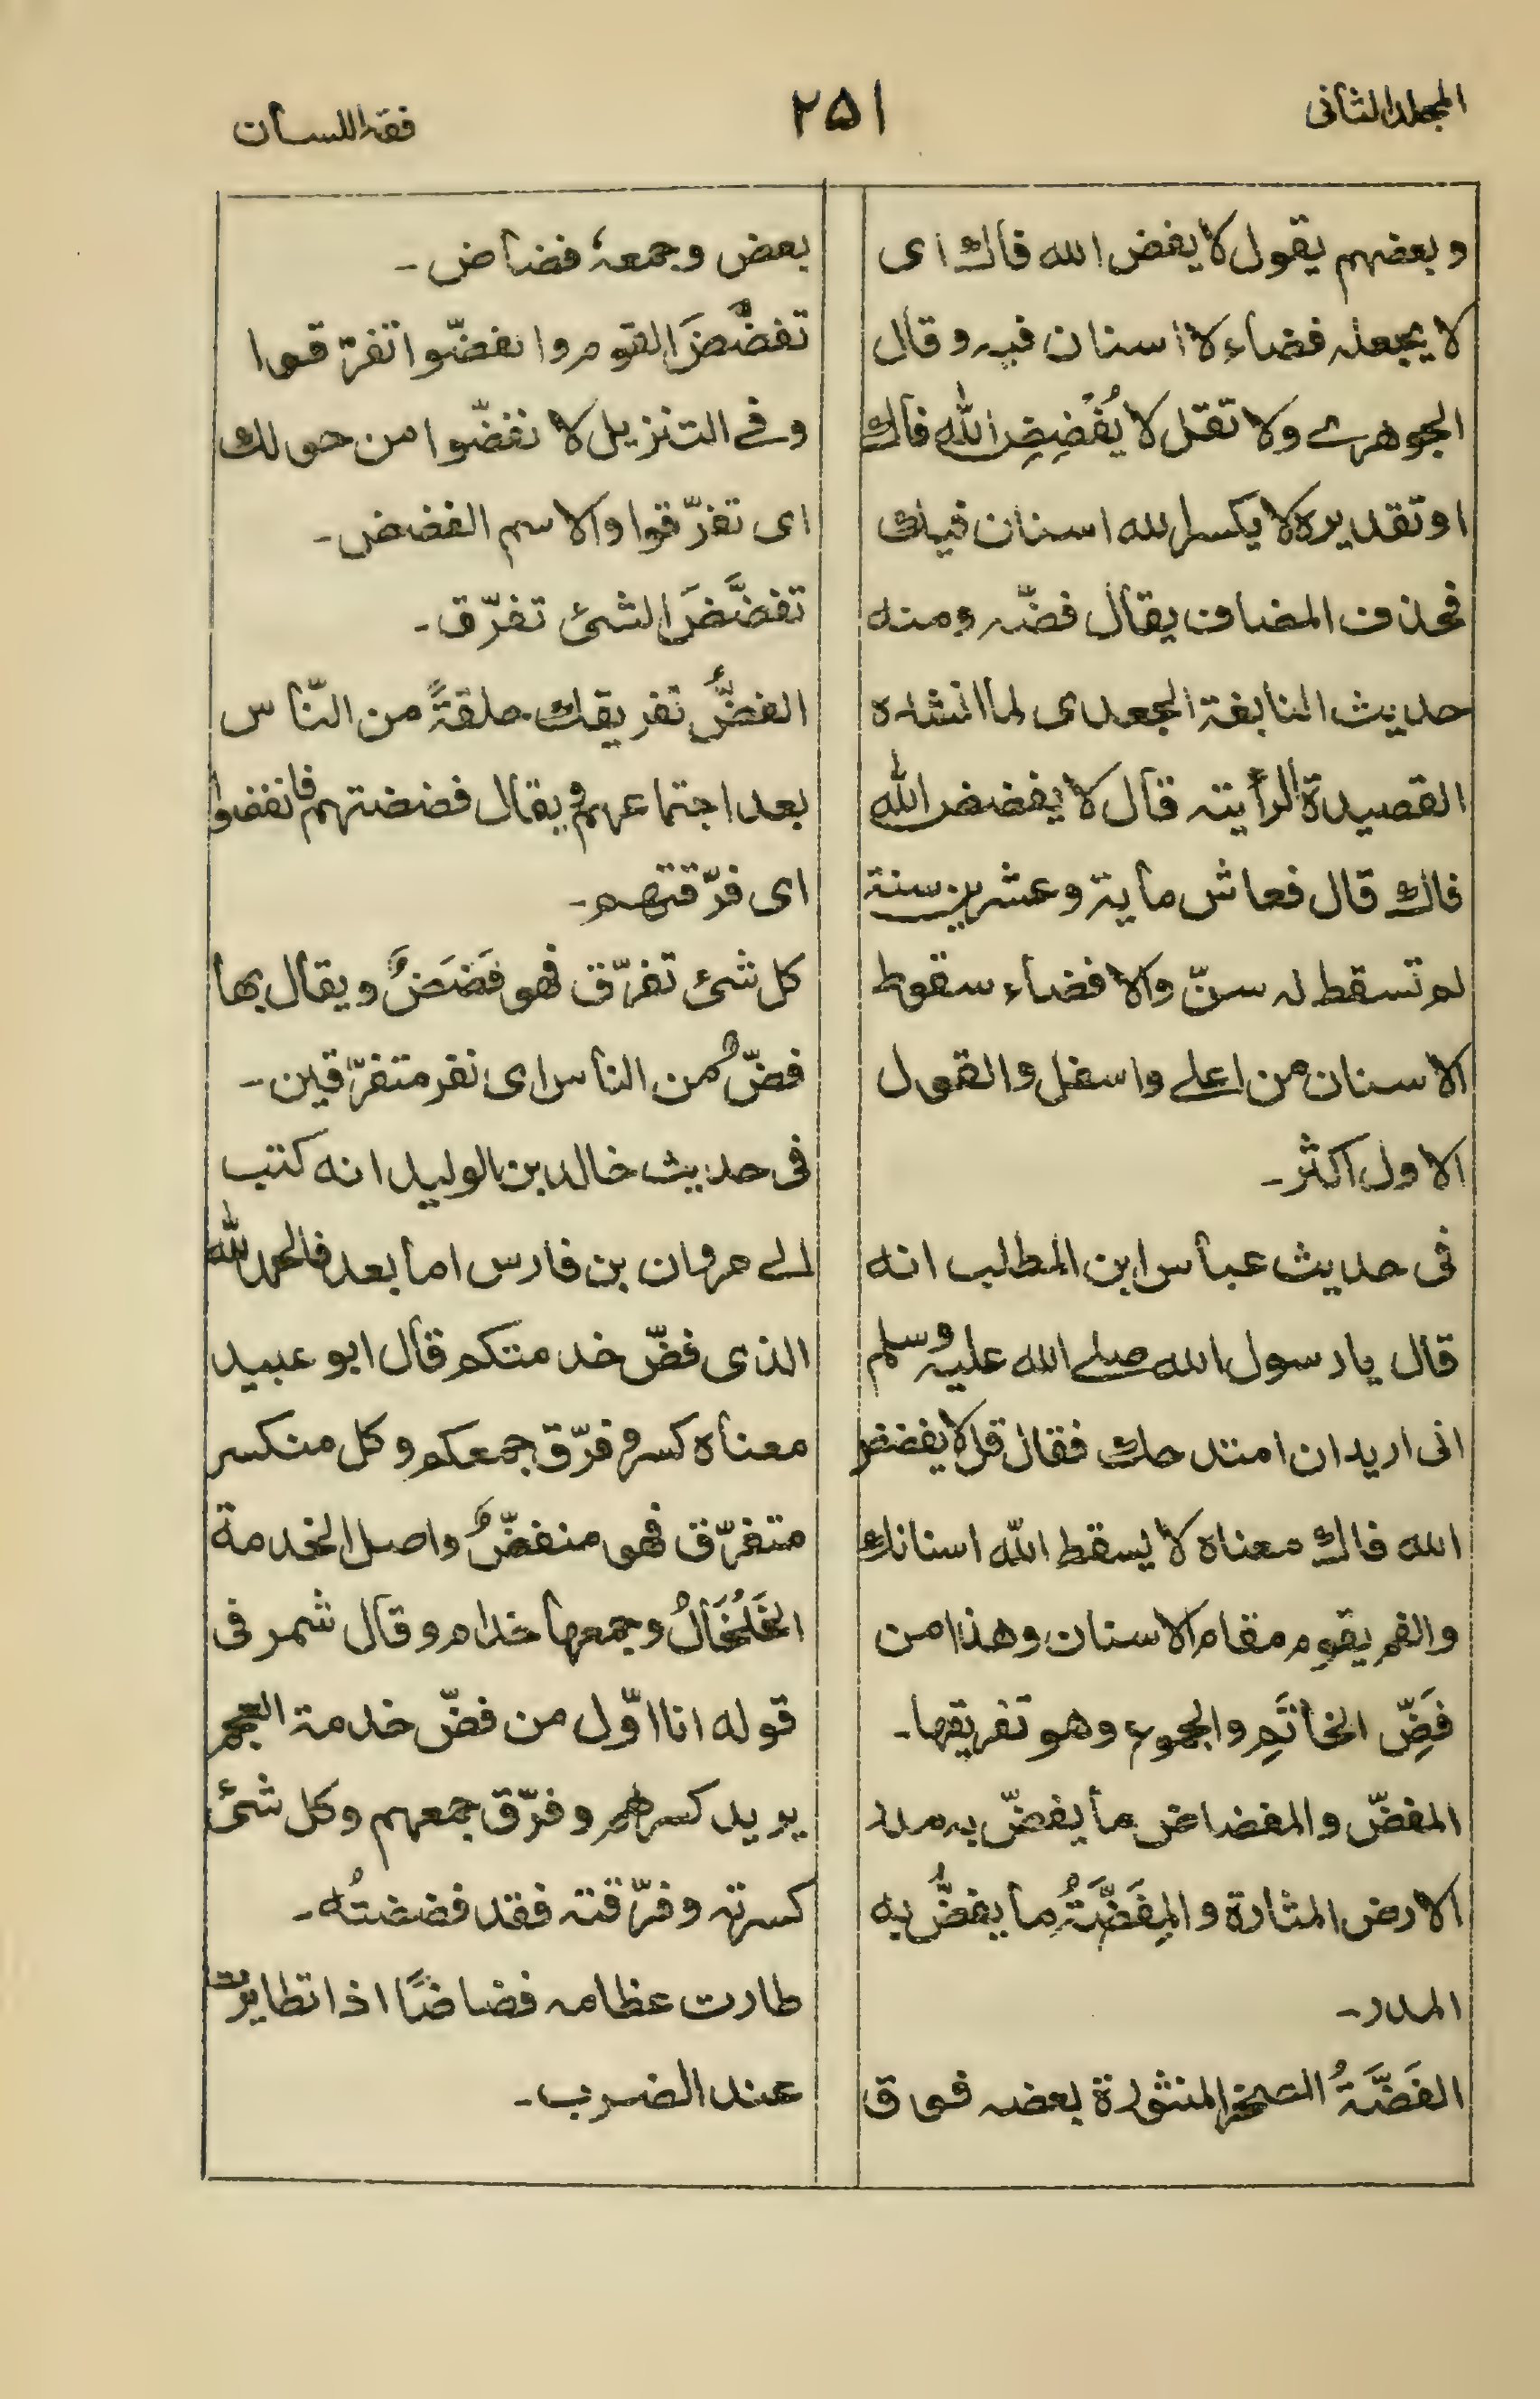 المجلد الثانی
۲۵۱
فقه اللسان
و بعضهم یقول لا یفض الله فاك ای
لا یجعله فضاء لا اسنان فیه و قال
الجوهرے ولا تقل لا یُفْضِضِ الله فاك
او تقدیره لا یکسر الله اسنان فیك
فحذف المضاف یقال فضّه ومنه
حدیث النابغة الجعدی لما انشده
القصیدة الرأیته قال لا یفضض الله
فاك قال فعاش مأیة وعشرین سنة
لم تسقط له سنّ والافضاء سقوط
الاسنان من اعلے واسفل والقول
الاول اکثر۔
فی حدیث عباس ابن المطلب انه
قال یارسول الله صلے الله علیه وسلم
انی ارید ان امتدحك فقال قل لا یفضض
الله فاك معناه لا یسقط الله اسنانك
والفم یقوم مقام الاسنان وهذا من
فَضِّ الخاتَمِ والجموع وهو تفریقها۔
المفضّ والمفضاض مأ یفضّ به مدر
الارض المثارة والمِفَضَّةُ مأ یفضُّ به
المدر۔
الفَضَّةُ الصخر المنثورة بعضه فوق
بعض وجمعهٗ فضأض۔
تفضَّضَ القوم وانفضّوا تفرّقوا
وفے التنزیل لا نفضّوا من حولك
ای تفرّقوا والاسم الفضض۔
تفضَّضَ الشئ تفرّق۔
الفضُّ تفریقك حلقةً من النّأس
بعد اجتماعهم و یقال فضضتهم فانفضوا
ای فرّقتهم۔
کل شئ تفرّق فهو فَضَضٌ و یقال بهأ
فضٌّ من النأس ای نفر متفرّقین۔
فی حدیث خالد بن الولید انه کتب
الے مروان بن فارس امأ بعد فالحمد لله
الذی فضّ خدمتکم قأل ابو عبید
معنأه کسر و فرّق جمعکم وکل منکسر
متفرّق فهو منفضٌّ واصل الخدمة
الخَلْخَالُ وجمعهأ خدام وقأل شمر فی
قوله انا اوّل من فضّ خدمة العجم
یرید کسرهم و فرّق جمعهم وکل شئ
کسرته وفرّقته فقد فضضتُه۔
طارت عظامه فضاضًا اذا تطایرت
عند الضرب۔